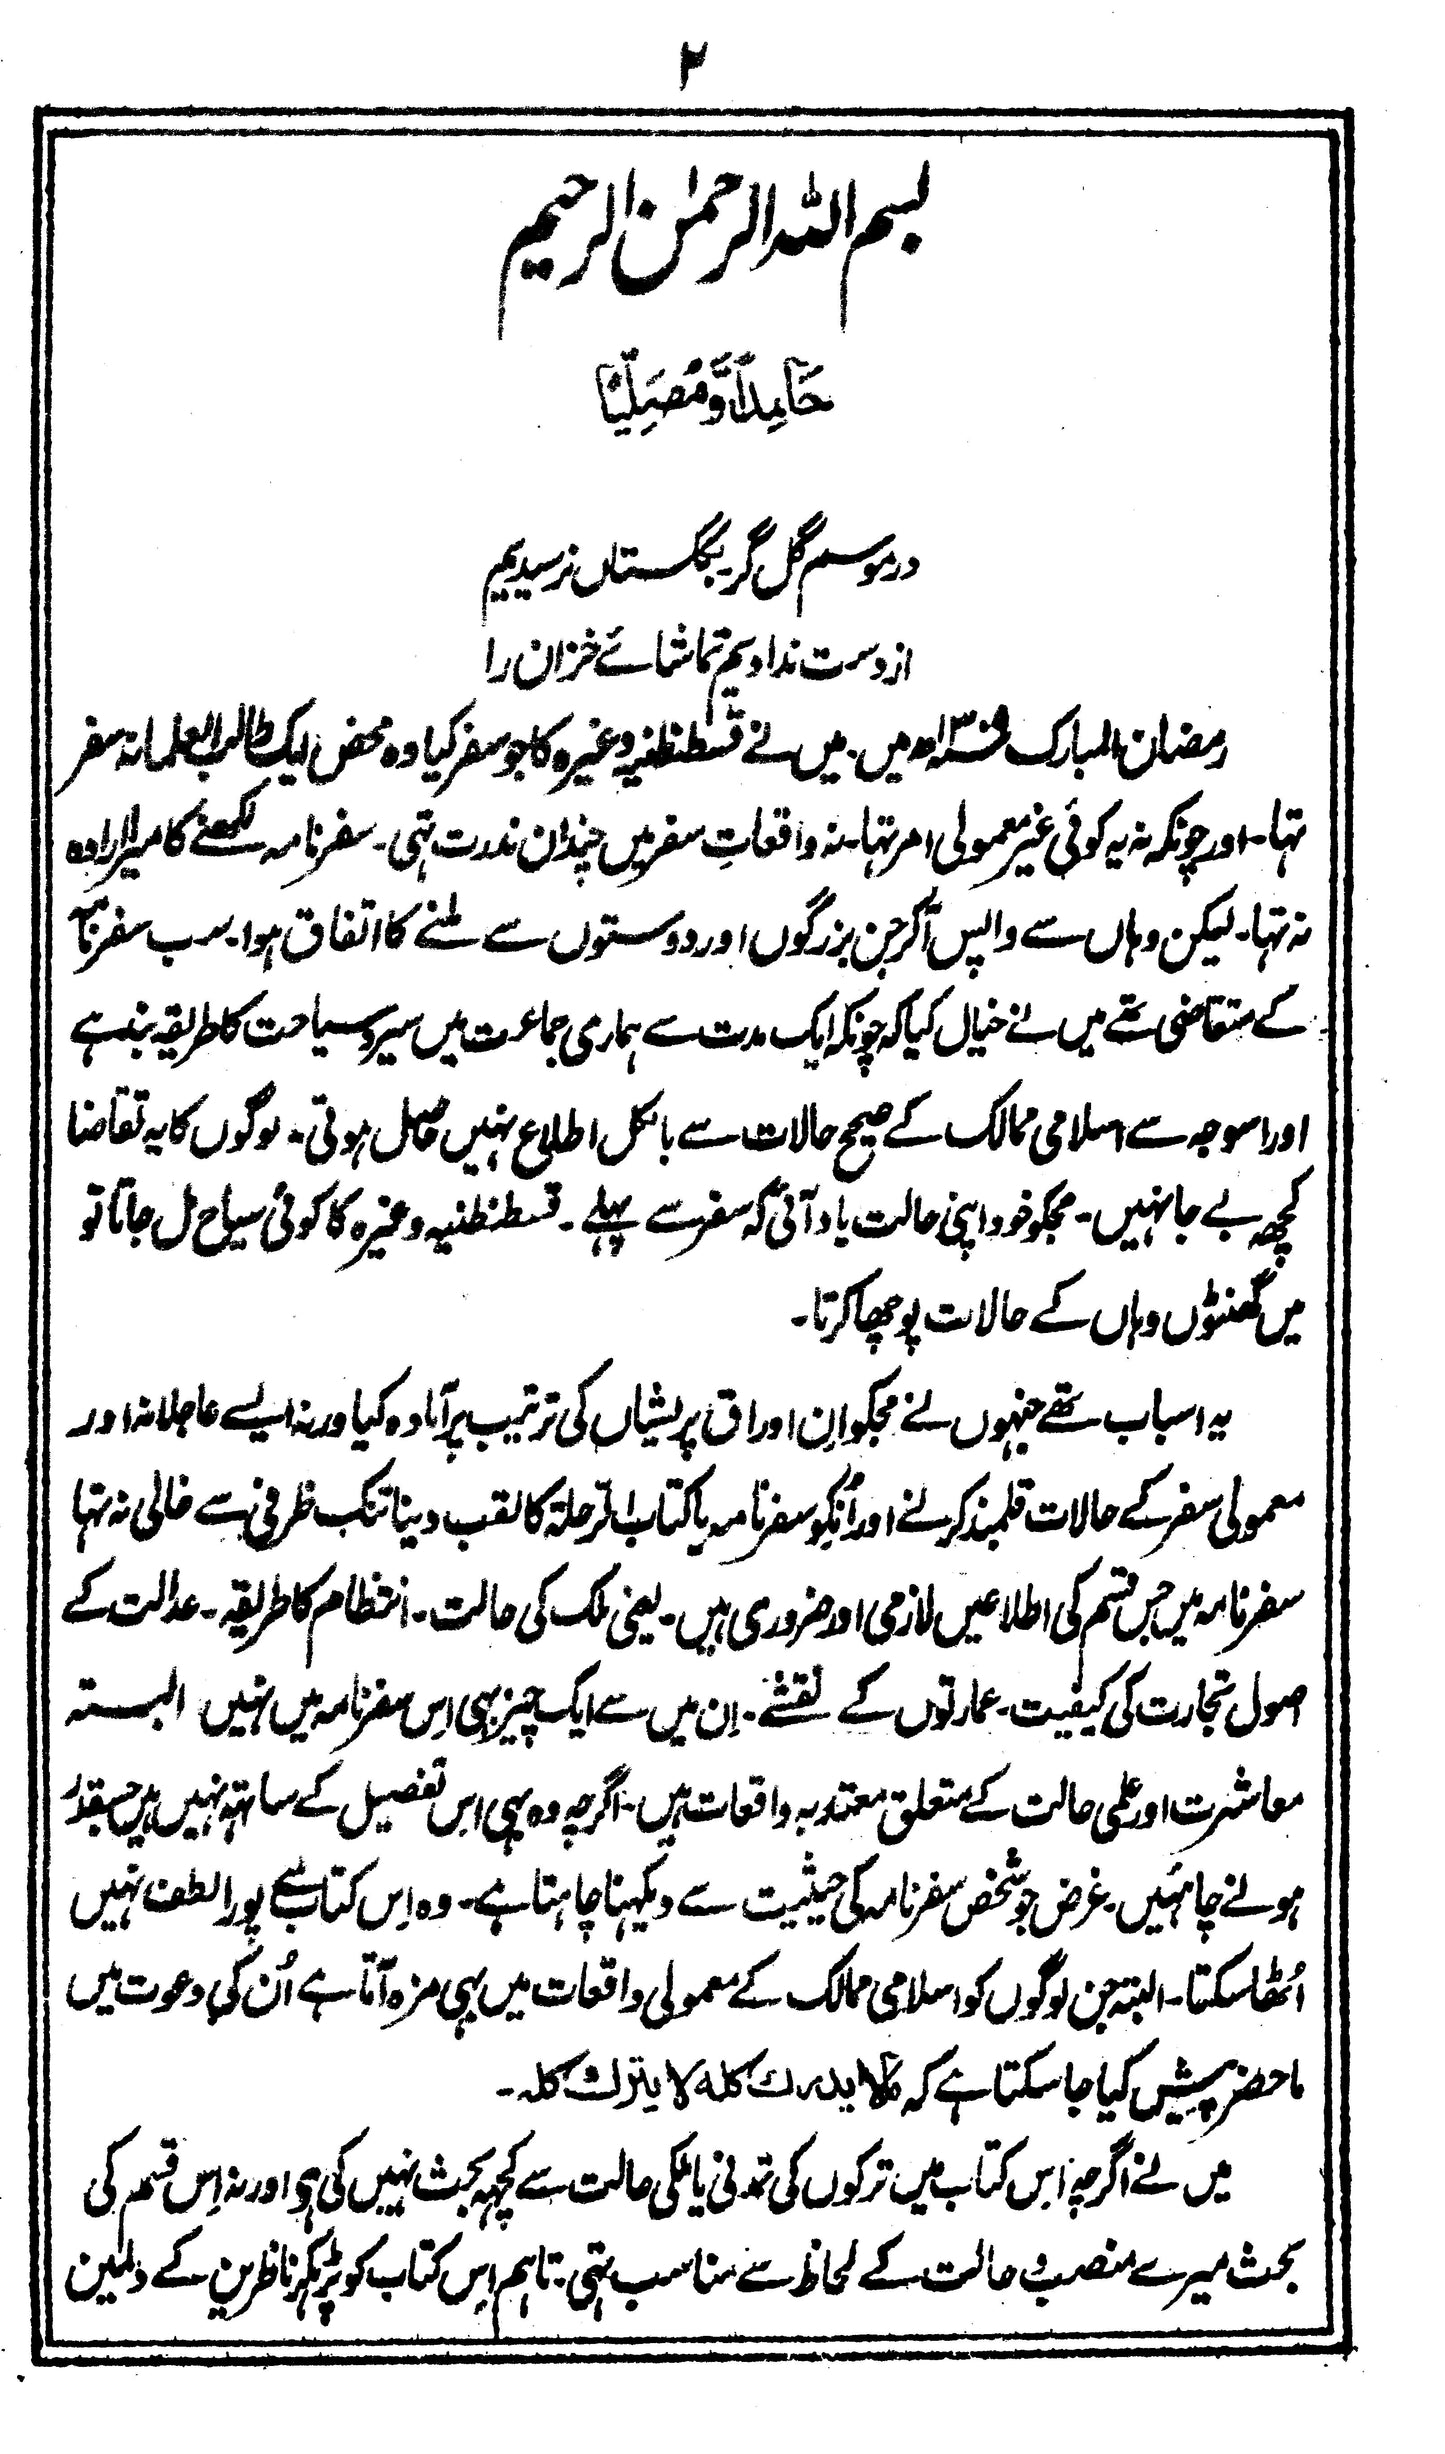 ۲
بسم اللہ الرحمٰن الرحیم
حَامِداً وَّمُصَلِّیًا
در موسم گل گر بگلستاں نرسیدیم
از دست ندادیم تماشائے خزان را
رمضان المبارک ۱۳۰۹ھ میں۔ میں نے قسطنطنیہ وغیرہ کا جو سفر کیا وہ محض ایک طالب العلمانہ سفر
تہا۔ اور چونکہ نہ یہ کوئی غیر معمولی امر تہا۔ نہ واقعاتِ سفر میں چندان ندرت تہی۔ سفرنامہ لکھنے کا میرا ارادہ
نہ تہا۔ لیکن وہاں سے واپس آکر جن بزرگوں اور دوستوں سے ملنے کا اتفاق ہوا۔ سب سفرنامہ
کے متقاضی تھے میں نے خیال کیا کہ چونکہ ایک مدت سے ہماری جماعت میں سیروسیاحت کا طریقہ بند ہے
اور اسوجہ سے اسلامی ممالک کے صحیح حالات سے بالکل اطلاع نہیں حاصل ہوتی۔ لوگوں کا یہ تقاضا
کچھ بے جا نہیں۔ مجکو خود اپنی حالت یاد آئی کہ سفر سے پہلے۔ قسطنطنیہ وغیرہ کا کوئی سیاح مل جاتا تو
میں گھنٹوں وہاں کے حالات پوچھا کرتا۔
یہ اسباب تھے جنہوں نے مجکو اِن اوراق پریشاں کی ترتیب پر آمادہ کیا ورنہ ایسے عاجلانہ اور
معمولی سفر کے حالات قلمبند کرنے اور اُنکو سفرنامہ یا کتاب الرحلۃ کا لقب دینا تنک ظرفی سے خالی نہ تہا
سفرنامہ میں جس قسم کی اطلاعیں لازمی اور ضروری ہیں۔ یعنی ملک کی حالت۔ انتظام کا طریقہ۔ عدالت کے
اصول تجارت کی کیفیت۔ عمارتوں کے نقشے۔ اِن میں سے ایک چیز بہی اِس سفرنامہ میں نہیں البتہ
معاشرت اور علمی حالت کے متعلق معتدبہ واقعات ہیں۔ اگرچہ وہ بہی اس تفصیل کے ساتہہ نہیں ہیں جسقدر
ہونے چاہئیں۔ غرض جو شخص سفرنامہ کی حیثیت سے دیکہنا چاہتا ہے۔ وہ اِس کتاب سے پورا لطف نہیں
اُٹھا سکتا۔ البتہ جن لوگوں کو اسلامی ممالک کے معمولی واقعات میں بہی مزہ آتا ہے اُن کی دعوت میں
ماحضر پیش کیا جا سکتا ہے کہ مالا یدرك کلہ لا یترك کلہ۔
میں نے اگرچہ اس کتاب میں ترکوں کی تمدنی یا ملکی حالت سے کچہہ بحث نہیں کی ہی اور نہ اِس قسم کی
بحث میرے منصب و حالت کے لحاظ سے مناسب تہی۔ تاہم اِس کتاب کو پڑہکر ناظرین۔ کے دلمین